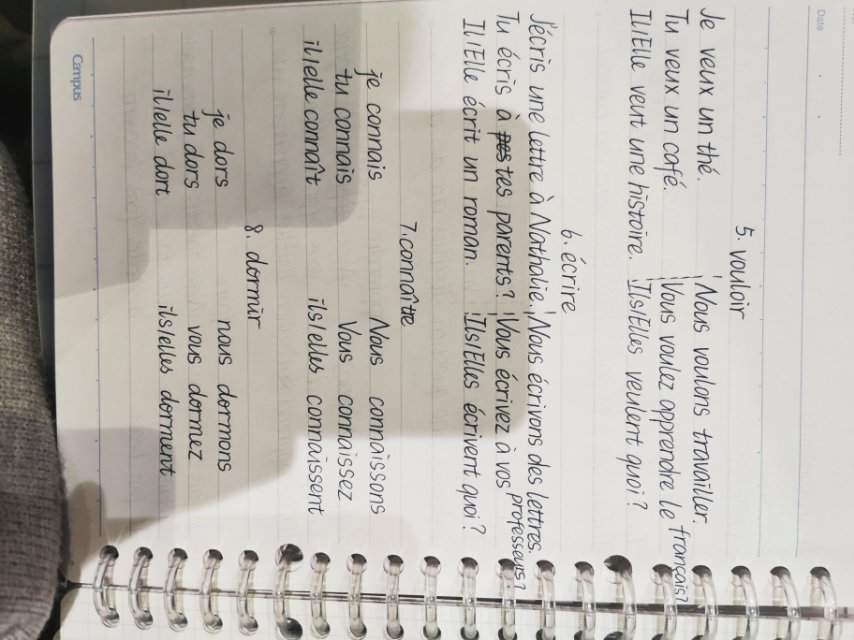 Date
5. vouloir
Je veux un thé. Nous voulons travailler.
Tu veux un café. Vous voulez apprendre le français?
Il/Elle veut une histoire. Ils/Elles veulent quoi?
6. écrire
J'écris une lettre à Nathalie. Nous écrivons des lettres.
Tu écris à tes parents? Vous écrivez à vos professeurs?
Il/Elle écrit un roman. Ils/Elles écrivent quoi?
7. connaître
je connais Nous connaissons
tu connais Vous connaissez
il/elle connaît ils/elles connaissent
8. dormir
je dors nous dormons
tu dors vous dormez
il/elle dort ils/elles dorment
Campus